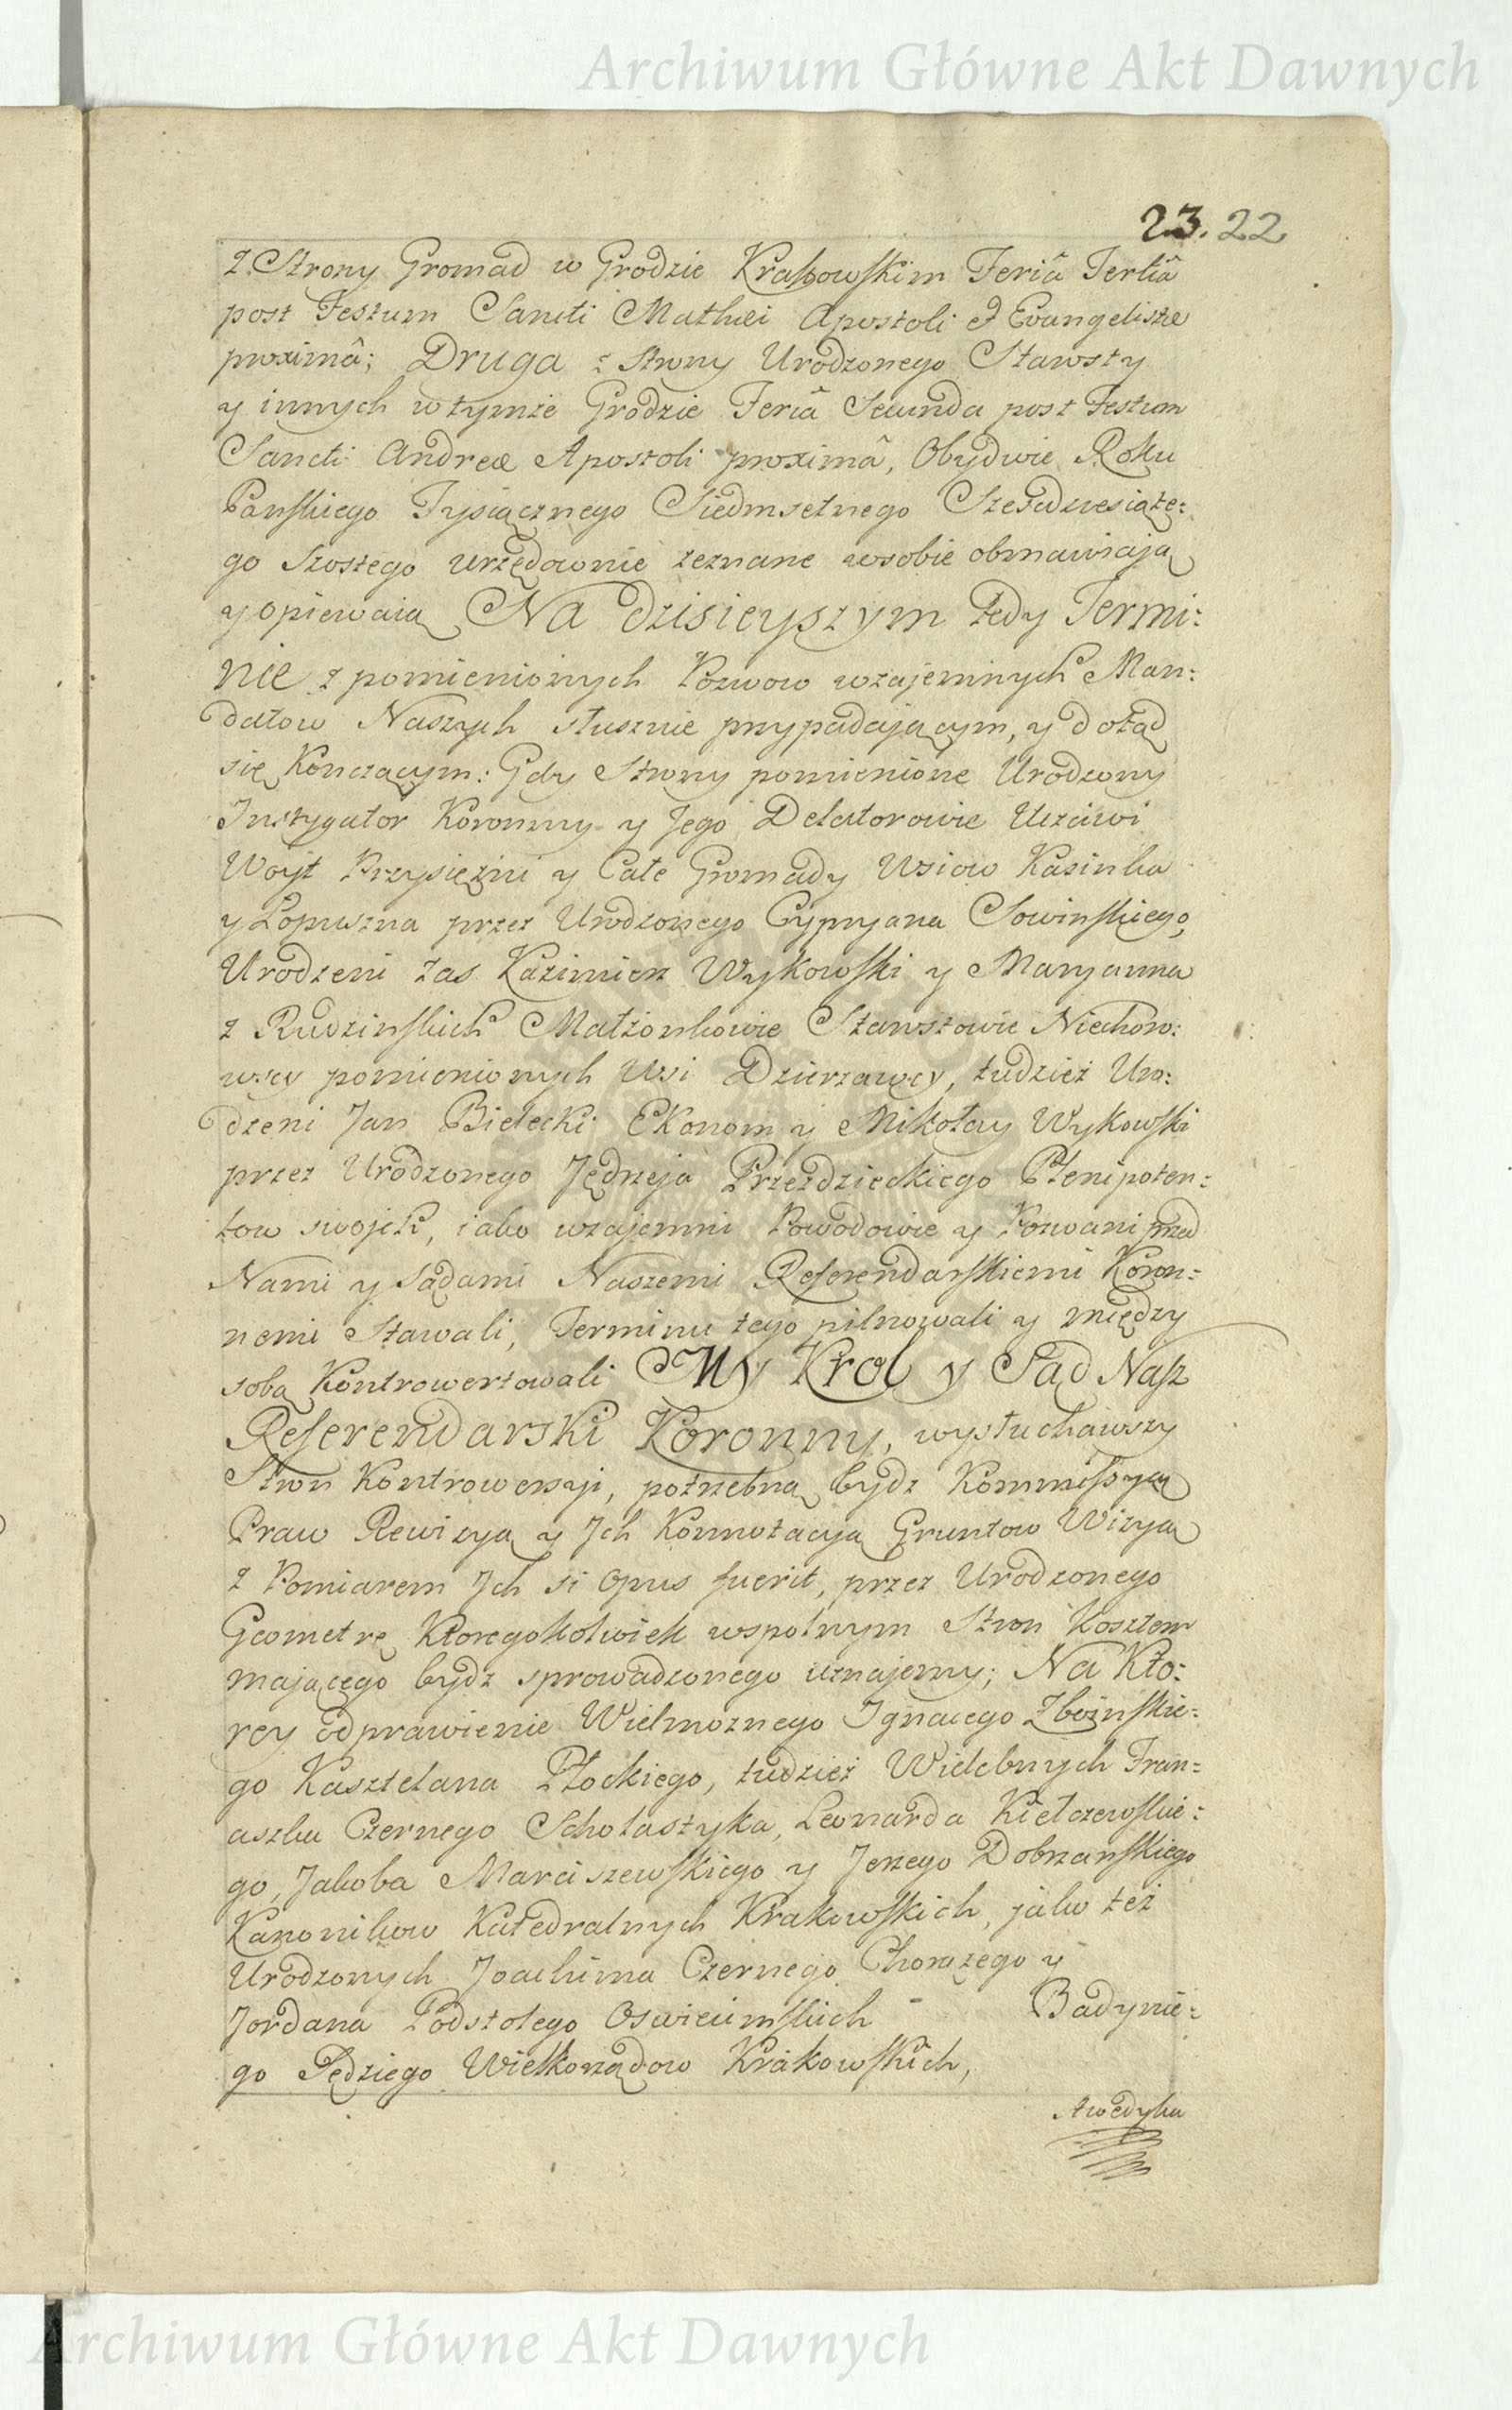 Archiwum Główne Akt Dawnych
23. 22
z Strony Gromad w Grodzie Krakowskim Feriâ Tertiâ
post Festum Sancti Mathæi Apostoli & Evangelistæ
proximâ; Druga z strony Urodzonego Starosty
y innych w tymże Grodzie Feriâ Secunda post Festum
Sancti Andreæ Apostoli proximâ, Obydwie Roku
Panskiego Tysiącznego Siedmsetnego Szesdziesiąte:
go Szostego urzędownie zeznane w sobie obmawiają
y opiewaią Na dzisieyszym tedy Termi:
nie z pomienionych Pozwow wzajemnych Man:
datow Naszych słusznie przypadającym, y dotąd
się Konczącym: Gdy Strony pomienione Urodzony
Instygator Koronny y Jego Delatorowie Uczciwi
Woyt Przysięzni y Całe Gromady Wsiow Kasinka
y Łopuszna przez Urodzonego Cypryana Sowinskiego,
Urodzeni zas Kazimierz Wykowski y Maryanna
z Rudzinskich Małżonkowie Starostowie Niechoro:
wscy pomienionych Wsi Dzierzawcy, tudzież Uro:
dzeni Jan Bielecki Ekonom y Mikołay Wykowski
przez Urodzonego Jędrzeja Przezdzieckiego Plenipoten:
tow swojch, iako wzajemni Powodowie y Pozwani przed
Nami y Sądami Naszemi Referendarskiemi Koron:
nemi Stawali, Terminu tego pilnowali y między
sobą Kontrowertowali My Krol y Sąd Nasz
Referendarski Koronny, wysłuchawszy
Stron Kontrowersyi, potrzebną bydz Kommissyą
Praw Rewizyą y Jch Konnotacyą Gruntow Wizyą
z Pomiarem Jch si opus fuerit, przez Urodzonego
Geometrę Ktoregokolwiek wspolnym Stron Kosztem
mającego bydz sprowadzonego uznajemy; Na Kto:
rey odprawienie Wielmoznego Ignacego Zboinskie:
go Kasztelana Płockiego, tudzież Wielebnych Fran:
ciszka Czernego Scholastyka, Leonarda Kiełczewskie:
go, Jakoba Marciszewskiego y Jerzego Dobrzanskiego
Kanonikow Katedralnych Krakowskich, jako też
Urodzonych Joachima Czernego Chorązego y
Jordana Podstolego Oswiecimskich - Badynie:
go Sędziego Wielkorządow Krakowskich,
Archiwum Główne Akt Dawnych